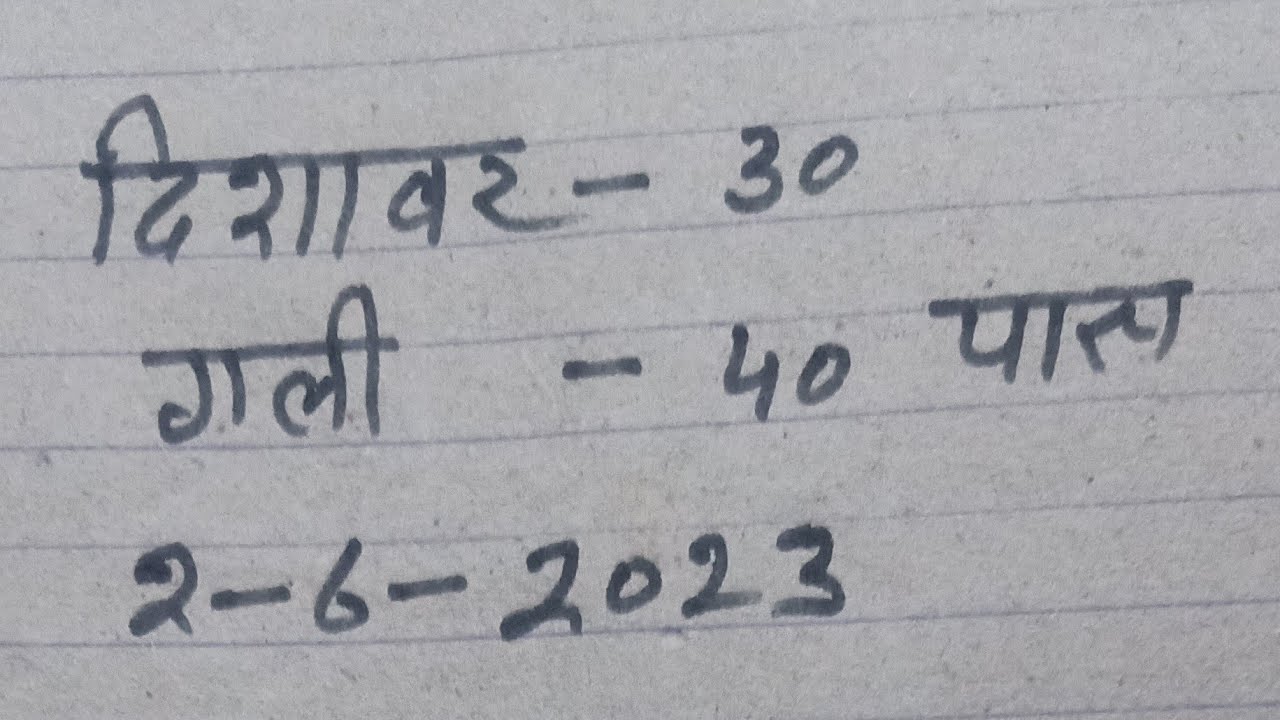 दिशावर - 30
गली - 40 पास
2-6-2023